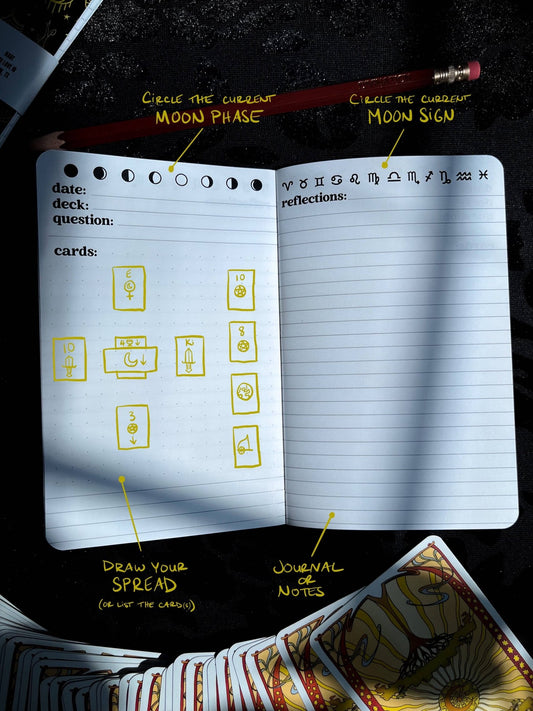 CIRCLE THE CURRENT
MOON PHASE
CIRCLE THE CURRENT
MOON SIGN
♈︎ ♉︎ ♊︎ ♋︎ ♌︎ ♍︎ ♎︎ ♏︎ ♐︎ ♑︎ ♒︎ ♓︎
date:
deck:
question:
reflections:
cards:
E
10
10
4
K
8
3
DRAW YOUR
SPREAD
(OR LIST THE CARD(S))
JOURNAL
OR
NOTES